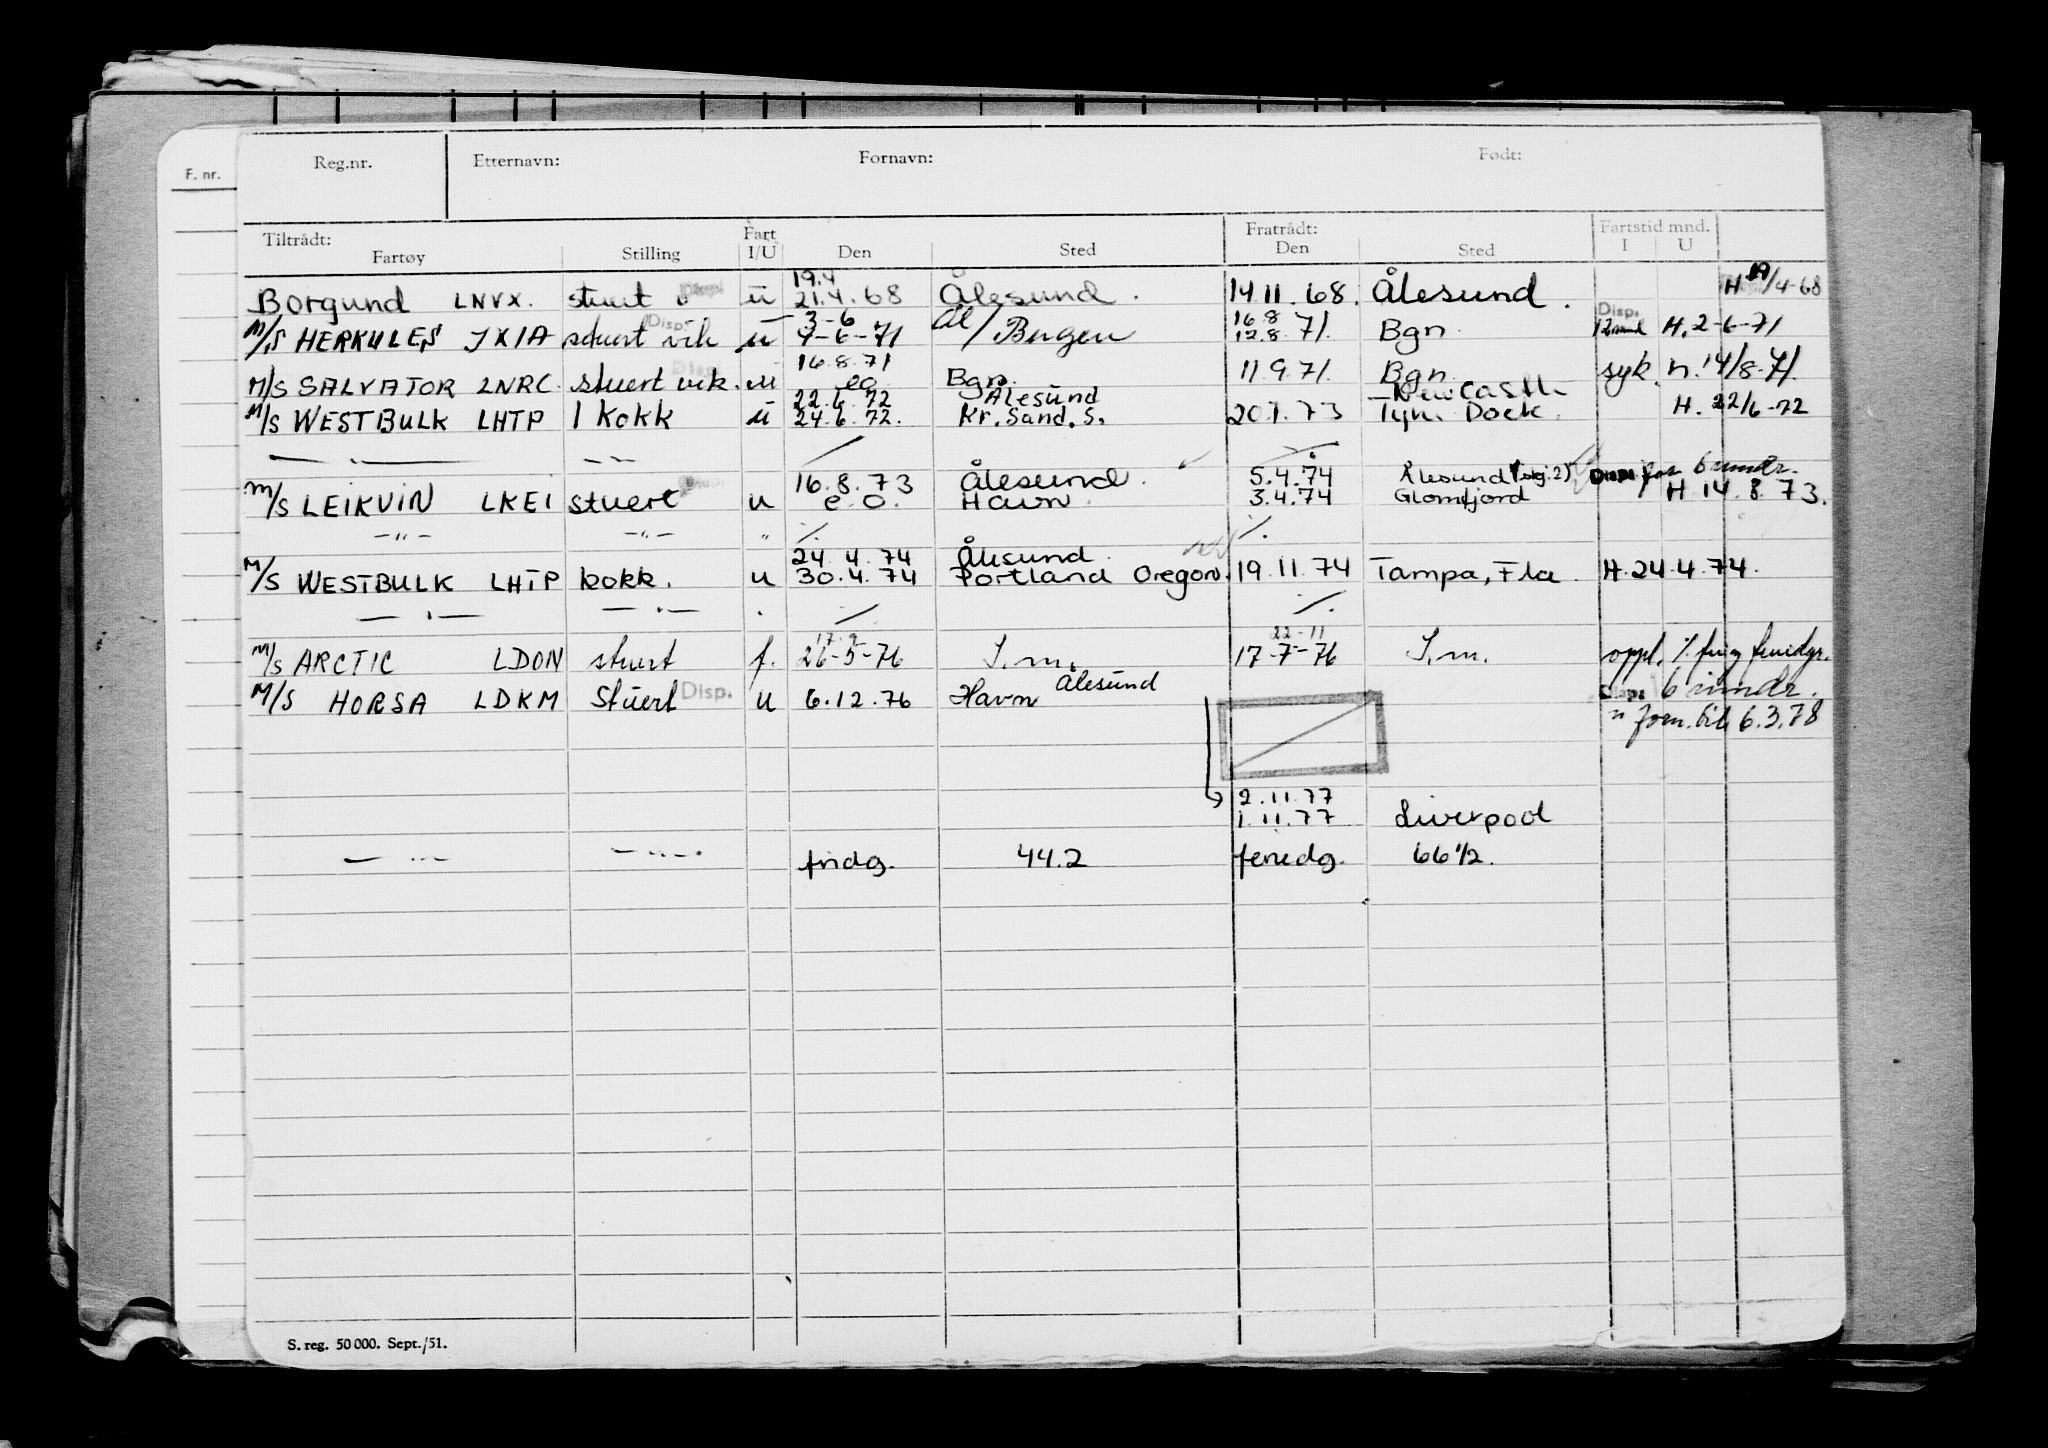 F. nr. Reg.nr. Etternavn: Fornavn: Født:
Tiltrådt: Fart Fratrådt: Fartstid mnd.
Fartøy Stilling I/U Den Sted Den Sted I U
19.4
Borgund LNVX. stuert u 21.4.68 Ålesund. 14.11.68. Ålesund. H 19/4-68
3-6 Ål/ 16.8 Disp.
M/S HERKULES JXIA stuert vik Disp. u 4-6-71 Bergen 12.8.71. Bgn. 12mnd H. 2-6-71
16.8.71
M/S SALVATOR LNRC. stuert vik. u eo Bgn. 11.9.71. Bgn. syk. n. 14/8-71.
22.6.72 Ålesund Newcastle
M/S WESTBULK LHTP 1 kokk u 24.6.72. Kr. Sand. S. 20.1.73 Tyn. Dock. H. 22/6-72
— . — — — ⁒ ⁒
16.8.73 Ålesund. 5.4.74 Ålesund Disp. for 6 mndr.
M/S LEIKVIN LKEI stuert u e.o. Havn. 3.4.74 Glomfjord H 14.8.73.
— " — — " — " ⁒ ⁒
24.4.74 Ålesund.
M/S WESTBULK LHTP kokk. u 30.4.74 Portland Oregon. 19.11.74 Tampa, Fla. H. 24.4.74.
— " — — " — . ⁒ ⁒
22-11
M/S ARCTIC LDON stuert f. 26-5-76 S.m. 17-7-76 S.m. oppl.
M/S HORSA LDKM Stuert Disp. u 6.12.76 Havn Ålesund Disp. 6 mndr.
" forn. til 6.3.78
2.11.77
1.11.77 Liverpool
— " — — " — fridg. 44.2 feriedg. 66 1/2.
S. reg. 50 000. Sept./51.